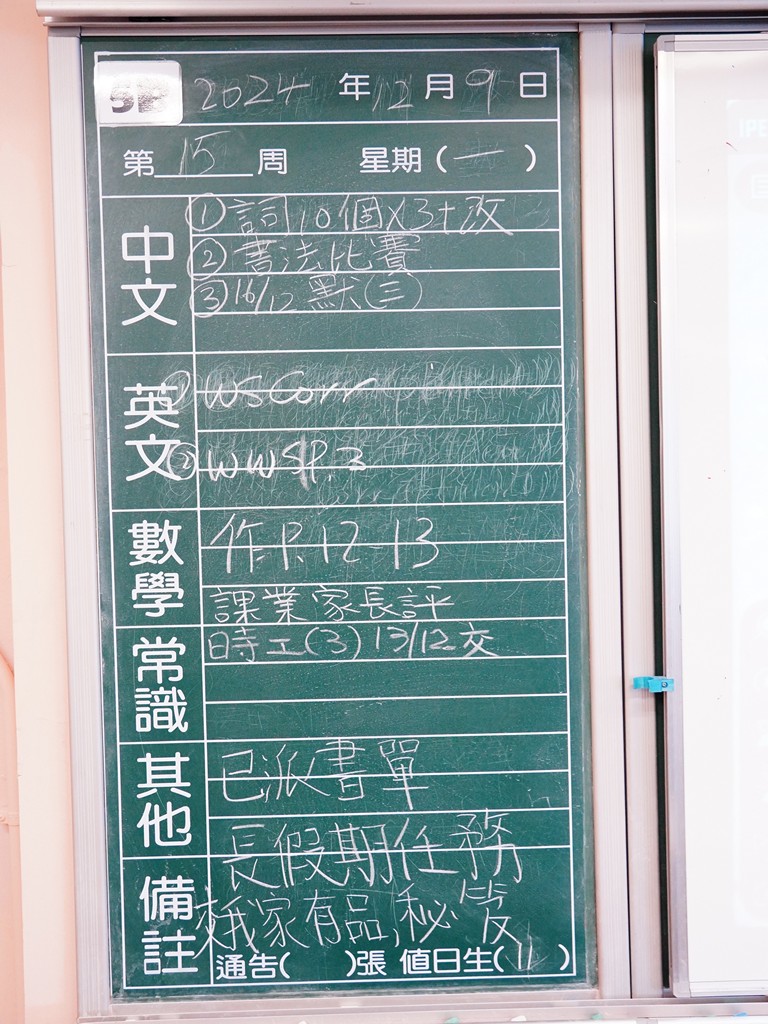 5B 2024 年 12 月 9 日
第 15 周 星期 ( 一 )
中文
① 詞10個X3+改
② 書法比賽
③ 16/12 默(三)
英文
① WS Corr
② WWS P.3
數學
作P.12-13
課業家長評
常識
時工(3) 13/12交
其他
已派書單
長假期任務
備註
我家有品,秘
通告( )張 值日生( 11 )